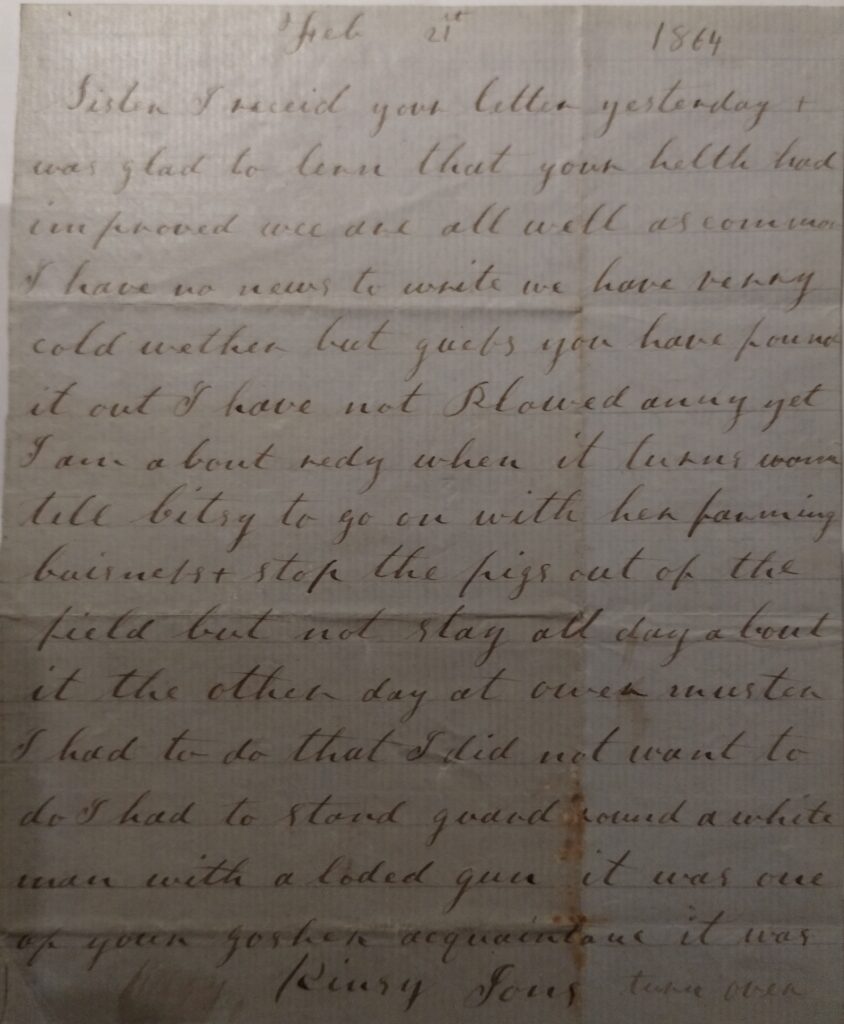 Feb 21st 1864
Sister I receid your letter yesterday +
was glad to lern that your helth had
improved wee are all well as common
I have no news to write we have verry
cold wether but guess you have found
it out I have not Plowed anny yet
I am about redy when it turns warm
tell bitsy to go on with her farming
buisness + stop the pigs out of the
field but not stay all day about
it the other day at ower muster
I had to do that I did not want to
do I had to stand guard round a white
man with a loded gun it was one
of your goshen acquaintanc it was
Kinsy Jons turn over